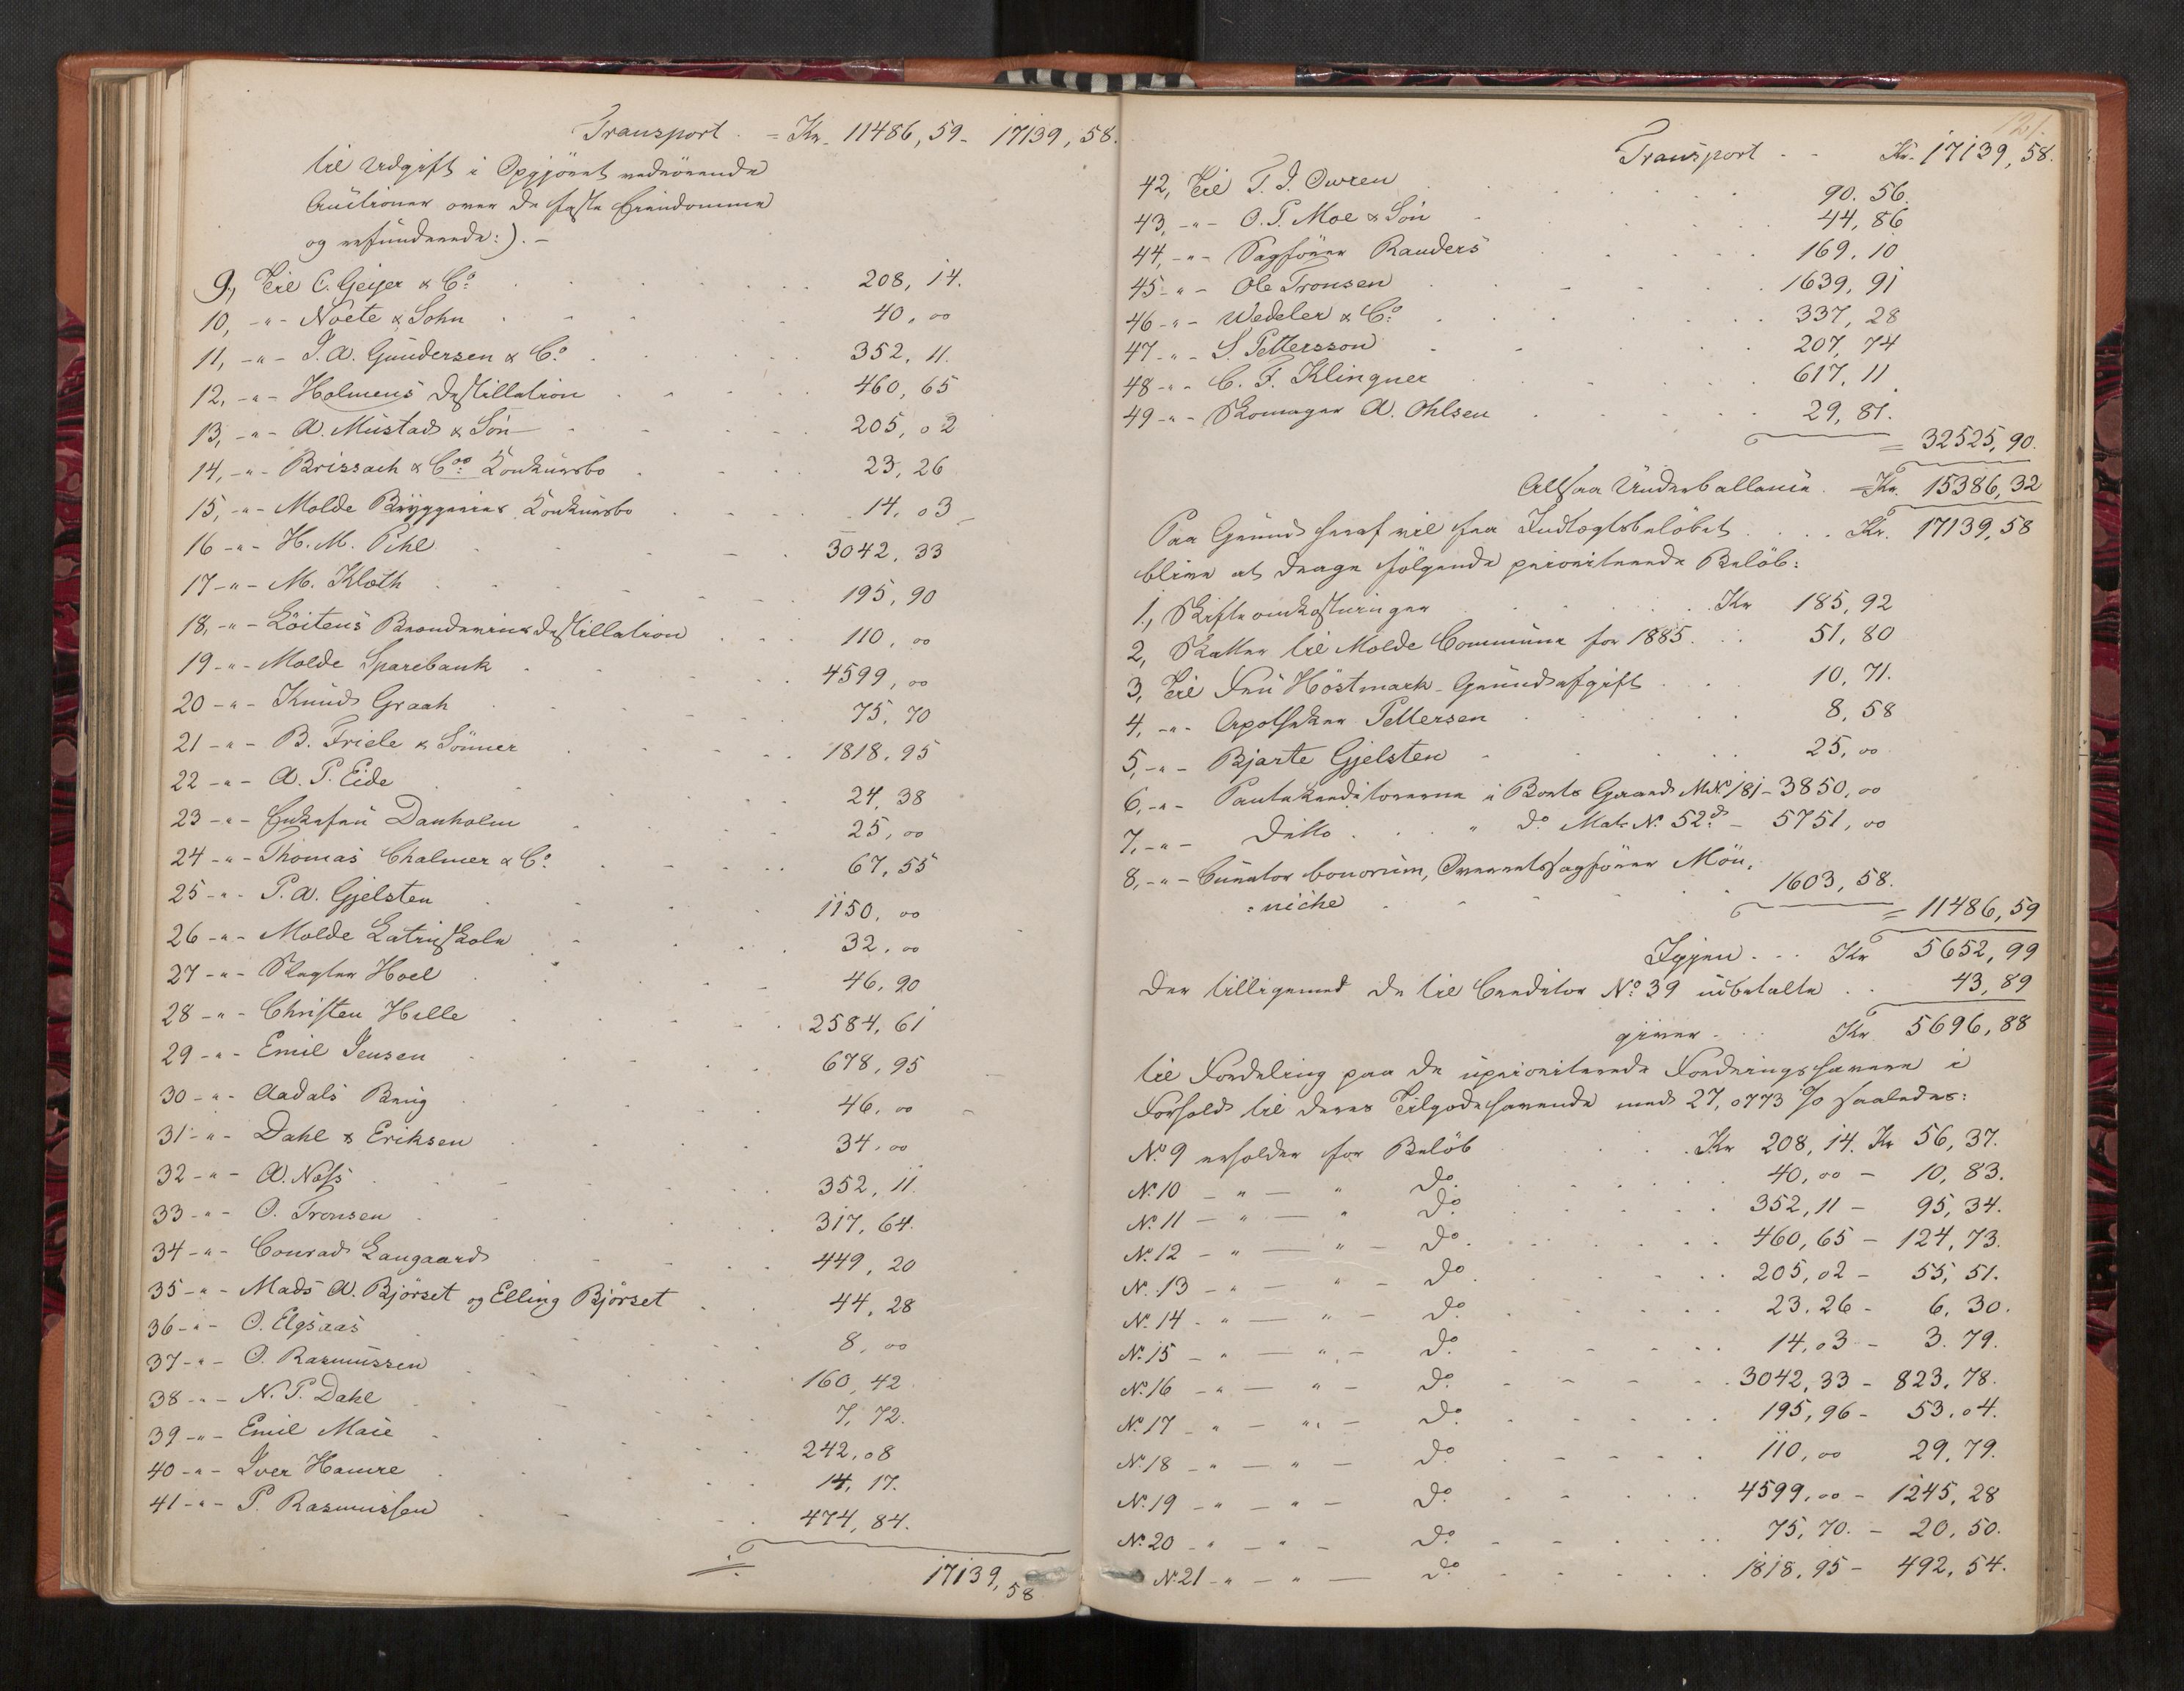 Transport . = Kr. 11486,59 - 17139,58.
til Udgift i Opgjöret vedrörende
Auctioner over de faste Eiendomme
og refunderede:). -
9, Til C. Geijer & Co. 208,14.
10, -"- Noete & Sohn 40,00
11, -"- J. A. Gundersen & Co. 352,11.
12, -"- Holmens Destillation 460,65
13, -"- A. Mustad & Sön 205,02
14, -"- Brissach & Coo. Konkursbo 23,26
15, -"- Molde Bryggeries Konkursbo 14,03
16 -"- H. M. Pihl 3042,33
17 -"- M. Kloth 195,90
18, -"- Löitens Brænderies Destillation 110,00
19 -"- Molde Sparebank 4599,00
20 -"- Knud Graah 75,70
21 -"- B. Friele & Sönner 1818,95
22 -"- A. P. Eide 24,38
23 -"- Enkefru Danholm 25,00
24 -"- Thomas Chalmer & Co. 67,55
25 -"- P. A. Gjelsten 1150,00
26 -"- Molde Latinskole 32,00
27 -"- Slagter Hoel 46,90
28 -"- Christen Hille 2584,61
29 -"- Emil Jensen 678,95
30 -"- Aadals Brug 46,00
31 -"- Dahl & Eriksen 34,00
32 -"- A. Næss 352,11.
33 -"- O. Tronsen 317,64.
34 -"- Conrad Langaard 449,20
35 -"- Mads A. Bjørset og Elling Bjørset 44,28
36 -"- O. Elgsaas 8,00
37 -"- O. Rasmussen 160,42
38 -"- N. P. Dahl 7,72.
39 -"- Emil Maie 242,08
40 -"- Iver Hamre 14,17.
41 -"- P. Rasmussen 474,84.
17139,58
121.
Transport - - Kr. 17139,58.
42, Til T. J. Owren 90.56.
43, -"- O. P. Moe & Sön 44,86
44, -"- Sagförer Randers 169,10
45 -"- Ole Tronsen 1639,91
46 -"- Wedeler & Co. 337,28
47 -"- S. Pettersson 207,74
48 -"- C. F. Klingner 617,11.
49 -"- Skomager A. Ohlsen 29,81.
= 32525,90.
Altsaa Underballance. = Kr. 15386,32
Paa Grund heraf vil fra Indtægtsbelöbet . . . . Kr. 17139,58
blive at drage følgende prioriterede Belöb:
1, Skifteomkostninger Kr 185,92
2, Skatter til Molde Commune for 1885. 51,80
3, Til Fru Höstmark - Grundafgift 10,71.
4, -"- Apotheker Pettersen 8,58
5, -"- Bjarte Gjelsten 25,00
6, -"- Pantekreditorerne i Boets Gaard M.N. 181 - 3850,00
7, -"- Ditto " do. Mat. N. 52d. - 5751,00
8, -"- Curator bonorum, Overretssagförer Mön,
=niche 1603,58.
= 11486,59
Igjen . . . Kr 5652,99
der tilligemed de til Creditor No. 39 udbetalte . . 43,89
giver . . . Kr 5696,88
til Fordeling paa de uprioriterede Fordringshavere i
Forhold til deres Tilgodehavende med 27,0773 % saaledes:
No. 9 erholder for Belöb Kr 208,14. Kr 56,37.
N. 10 - " - " do. 40,00 - 10,83.
N. 11 - " - " do. 352,11 - 95,34.
N. 12 - " - " - do. 460,65 - 124,73.
N. 13 - " - " - do. 205,02 - 55,51.
N. 14 - " - " - do. 23.26 - 6,30.
N. 15 - " - " - do. 14,03 - 3.79.
N. 16 - " - " - do. 3042,33 - 823,78.
N. 17 - " - " - do. 195,96 - 53,04.
N. 18 - " - " - do. 110,00 29,79.
N. 19 - " - " - do. 4599,00 - 1245,28
N. 20 - " - " - do. 75,70. - 20,50.
N. 21 - " - " - do. 1818,95 - 492,54.